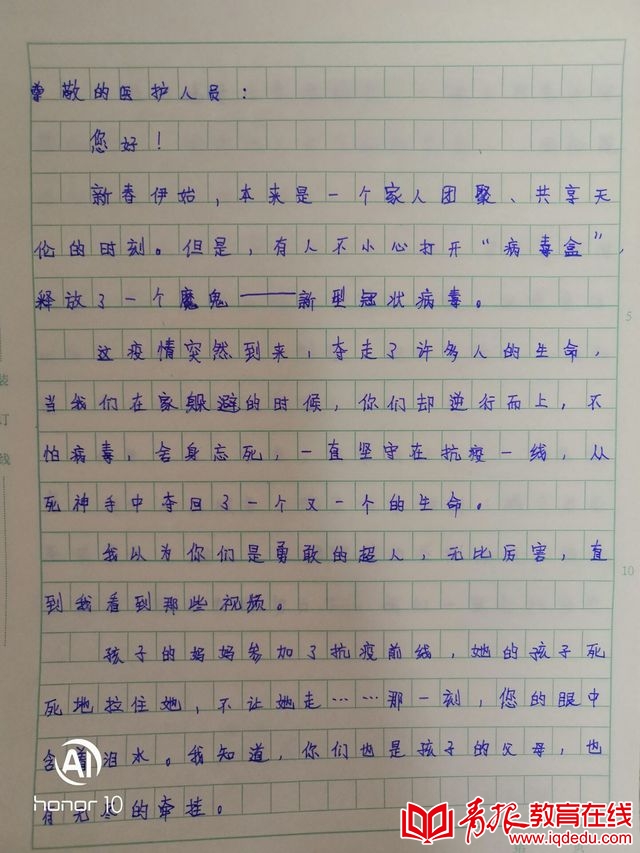 尊敬的医护人员：
您好！
新春伊始，本来是一个家人团聚、共享天
伦的时刻。但是，有人不小心打开“病毒盒”，
释放了一个魔鬼——新型冠状病毒。
5
这疫情突然到来，夺走了许多人的生命，
当我们在家躲避的时候，你们却逆行而上，不
怕病毒，舍身忘死，一直坚守在抗疫一线，从
死神手中夺回了一个又一个的生命。
我以为你们是勇敢的超人，无比厉害，直
10
到我看到那些视频。
孩子的妈妈参加了抗疫前线，她的孩子死
死地拉住她，不让她走……那一刻，您的眼中
含着泪水。我知道，你们也是孩子的父母，也
有无尽的牵挂。
装
订
线
AI
honor 10
青报教育在线
www.iqdedu.com